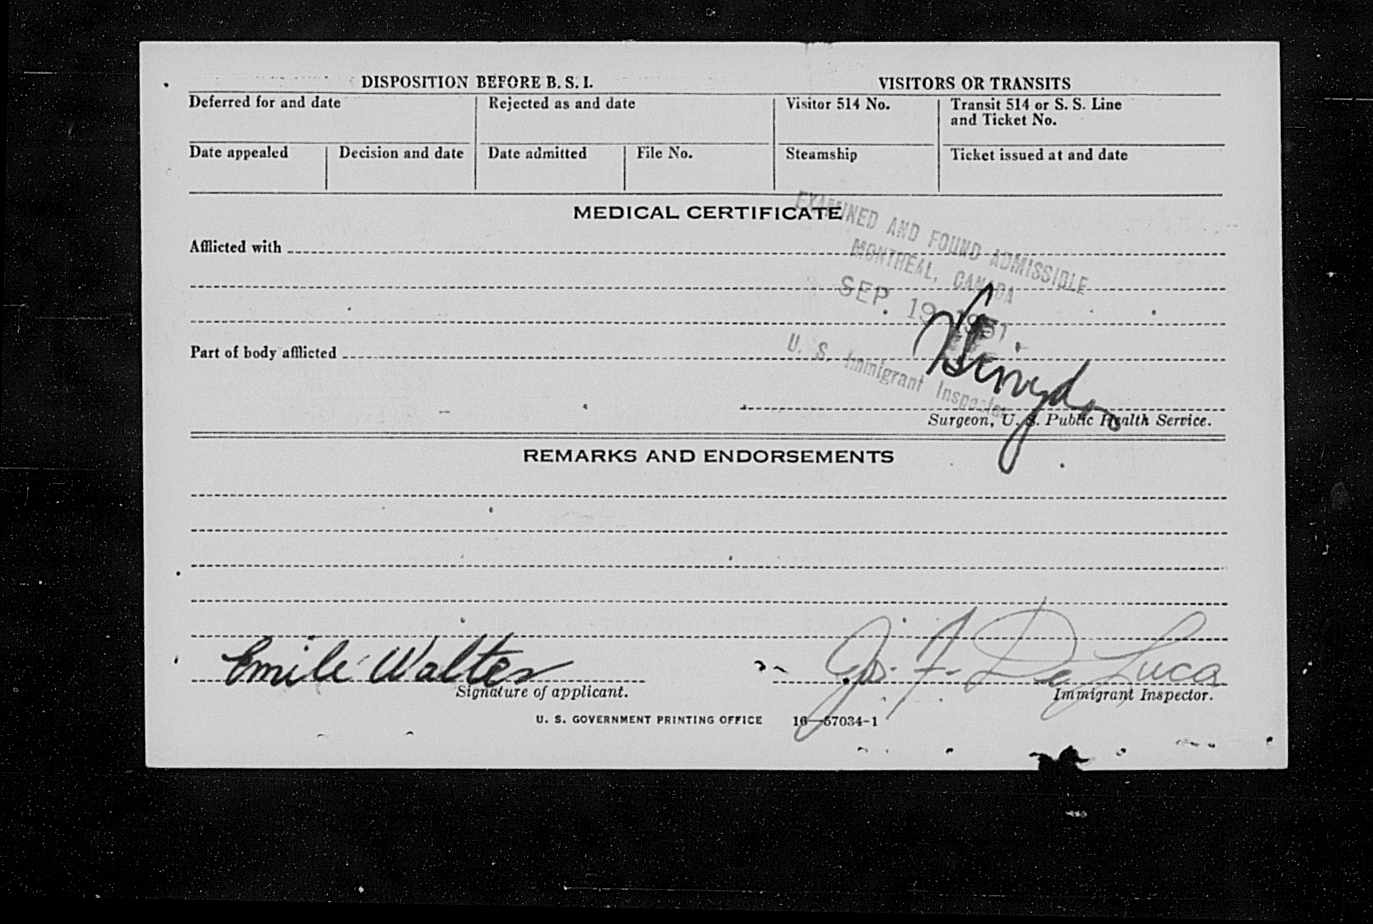 DISPOSITION BEFORE B. S. I.
VISITORS OR TRANSITS
Deferred for and date
Rejected as and date
Visitor 514 No.
Transit 514 or S. S. Line
and Ticket No.
Date appealed
Decision and date
Date admitted
File No.
Steamship
Ticket issued at and date
MEDICAL CERTIFICATE
EXAMINED AND FOUND ADMISSIBLE
MONTREAL, CANADA
SEP 19 1951
U. S. Immigrant Inspector
Afflicted with
Part of body afflicted
Surgeon, U. S. Public Health Service.
REMARKS AND ENDORSEMENTS
Emile Walter
Signature of applicant.
De Luca
Immigrant Inspector.
U. S. GOVERNMENT PRINTING OFFICE 16—57034-1